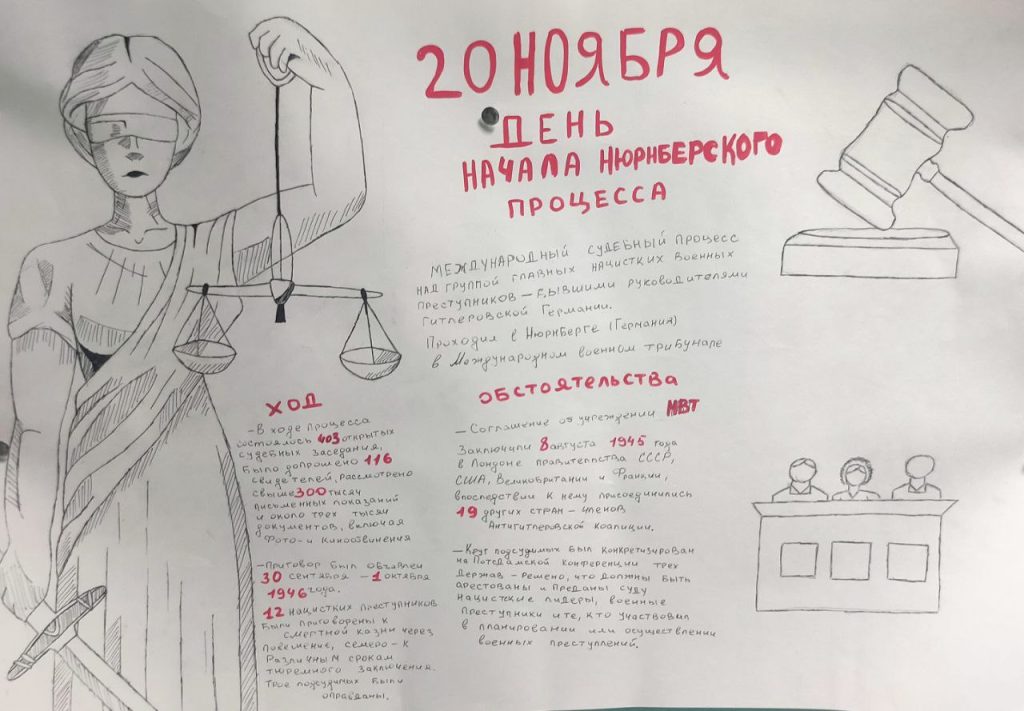 20 НОЯБРЯ
ДЕНЬ
НАЧАЛА НЮРНБЕРСКОГО
ПРОЦЕССА
МЕЖДУНАРОДНЫЙ СУДЕБНЫЙ ПРОЦЕСС
НАД ГРУППОЙ ГЛАВНЫХ НАЦИСТКИХ ВОЕННЫХ
ПРЕСТУПНИКОВ — БЫВШИМИ РУКОВОДИТЕЛЯМИ
ГИТЛЕРОВСКОЙ ГЕРМАНИИ.
Проходил в Нюрнберге (Германия)
в Международном военном трибунале
ХОД
- В ходе процесса
состоялось 403 открытых
судебных заседания,
Было допрошено 116
свидетелей, рассмотрено
свыше 300 тысяч
письменных показаний
и около трех тысяч
документов, включая
Фото- и кинообвинения
- Приговор был объявлен
30 сентября - 1 октября
1946 года.
12 нацистких преступников
были приговорены к
смертной казни через
повешение, семеро - к
различным срокам
тюремного заключения.
Трое подсудимых были
оправданы.
ОБСТОЯТЕЛЬСТВА
— Соглашение об учреждении МВТ
Заключили 8 августа 1945 года
в Лондоне правительства СССР,
США, Великобритании и Франции,
впоследствии к нему присоединились
19 других стран - членов
Антигитлеровской коалиции.
— Круг подсудимых был конкретизирован
на Потсдамской конференции трех
Держав - решено, что должны быть
арестованы и преданы суду
нацисткие лидеры, военные
преступники и те, кто участвовал
в планировании или осуществлении
военных преступлений.